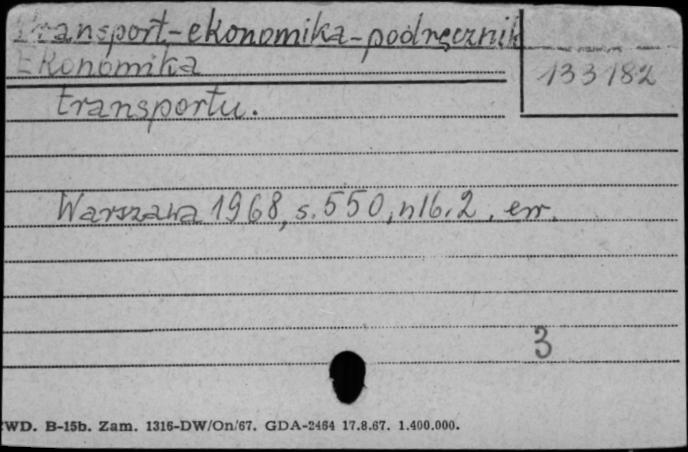 Transport-ekonomika-podręcznik
133182
Ekonomika
transportu.
Warszawa 1968, s.550, nlb.2, err.
3
WD. B-15b. Zam. 1316-DW/On/67. GDA-2464 17.8.67. 1.400.000.